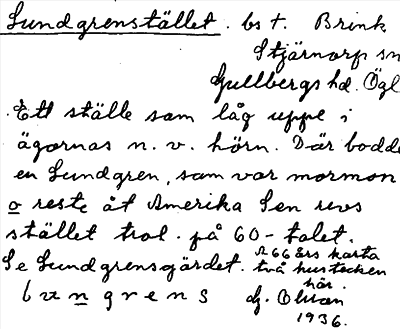 Lundgrenstället. bs t. Brink
Stjärnorp sn
Gullbergs hd. Ögl
Ett ställe som låg uppe i
ägornas n. v. hörn. Där bodde
en Lundgren, som var mormon
o reste åt Amerika Sen revs
stället trol. på 60-talet.
Se Lundgrensgärdet. 1866 års karta
två hustecken
här.
G.
1936.